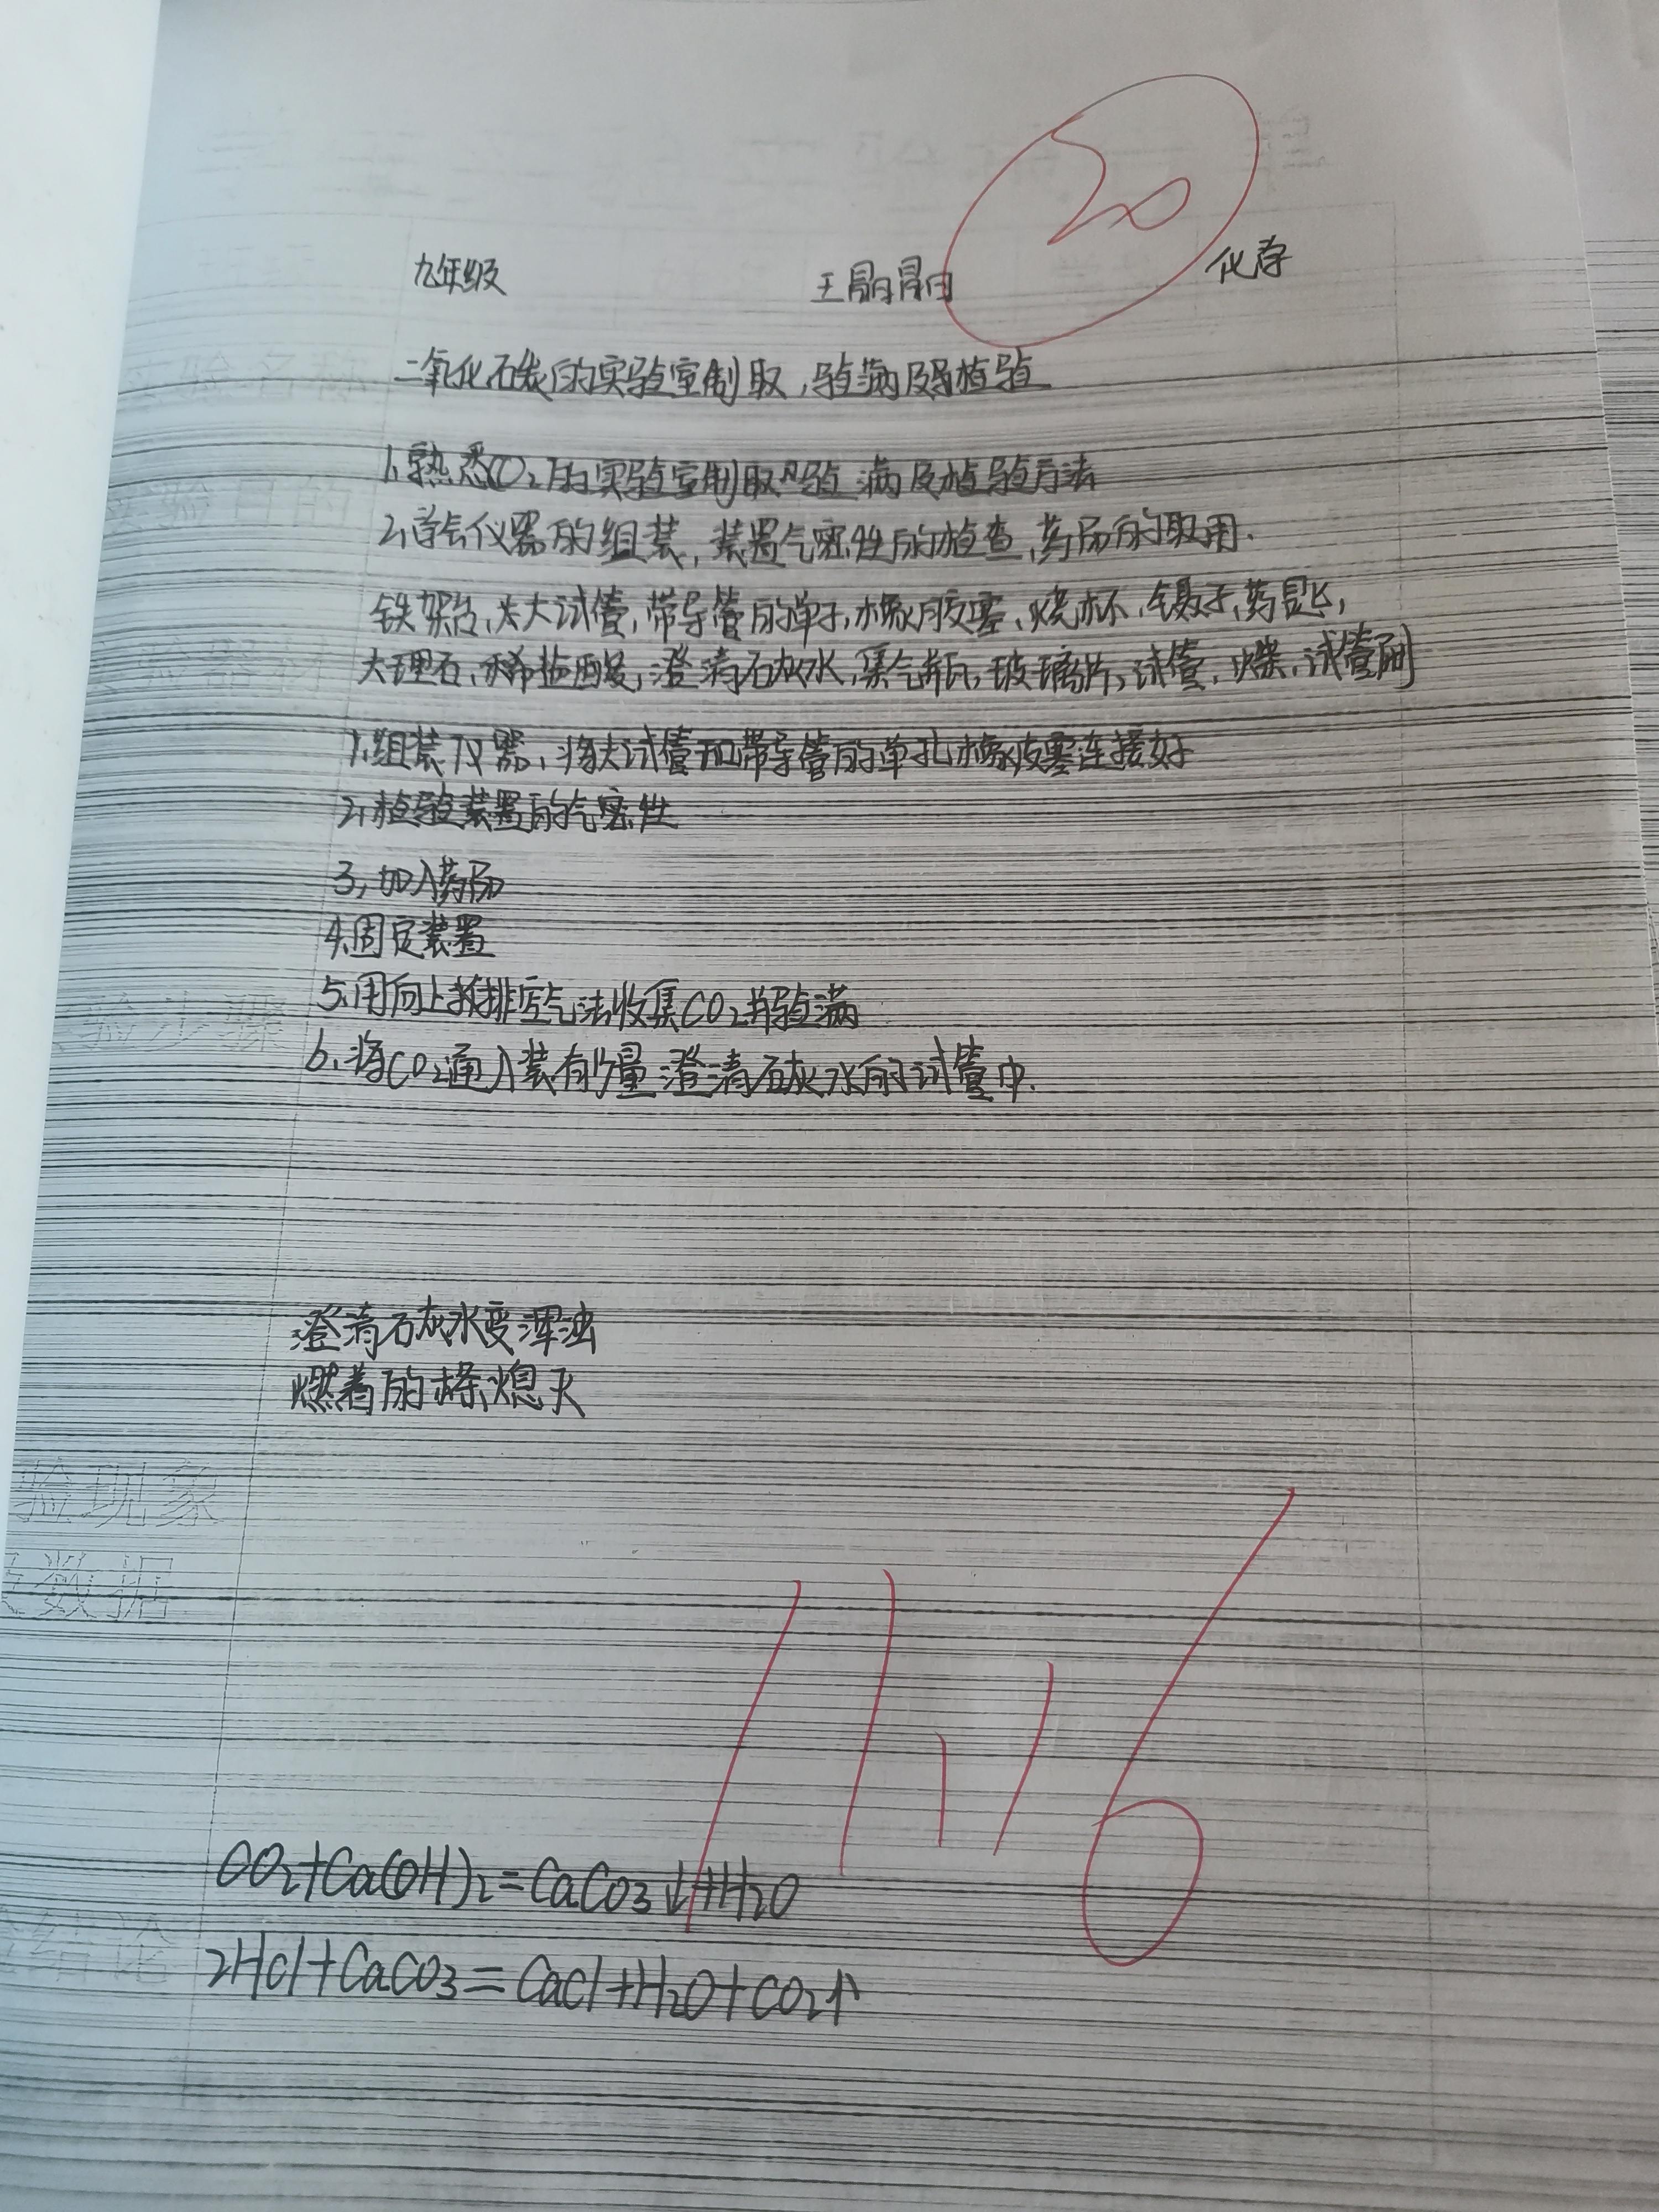 20
九年级 王晶晶 化学
二氧化碳的实验室制取，验满及检验
实验名称
1.熟悉CO2的实验室制取，验满及检验方法
实验目的
2.学会仪器的组装，装置气密性的检查，药品的取用.
铁架台，大试管，带导管的单孔橡胶塞，烧杯，镊子，药匙，
实验器材
大理石，稀盐酸，澄清石灰水，集气瓶，玻璃片，试管，火柴，试管刷
1.组装仪器，将大试管和带导管的单孔橡皮塞连接好
2.检验装置的气密性
3，加入药品
4.固定装置
5.用向上排空气法收集CO2并验满
验步骤
6.将CO2通入装有少量澄清石灰水的试管中.
澄清石灰水变浑浊
燃着的木条熄灭
验现象
数据
CO2+Ca(OH)2=CaCO3↓+H2O
结论
2HCl+CaCO3=CaCl+H2O+CO2↑